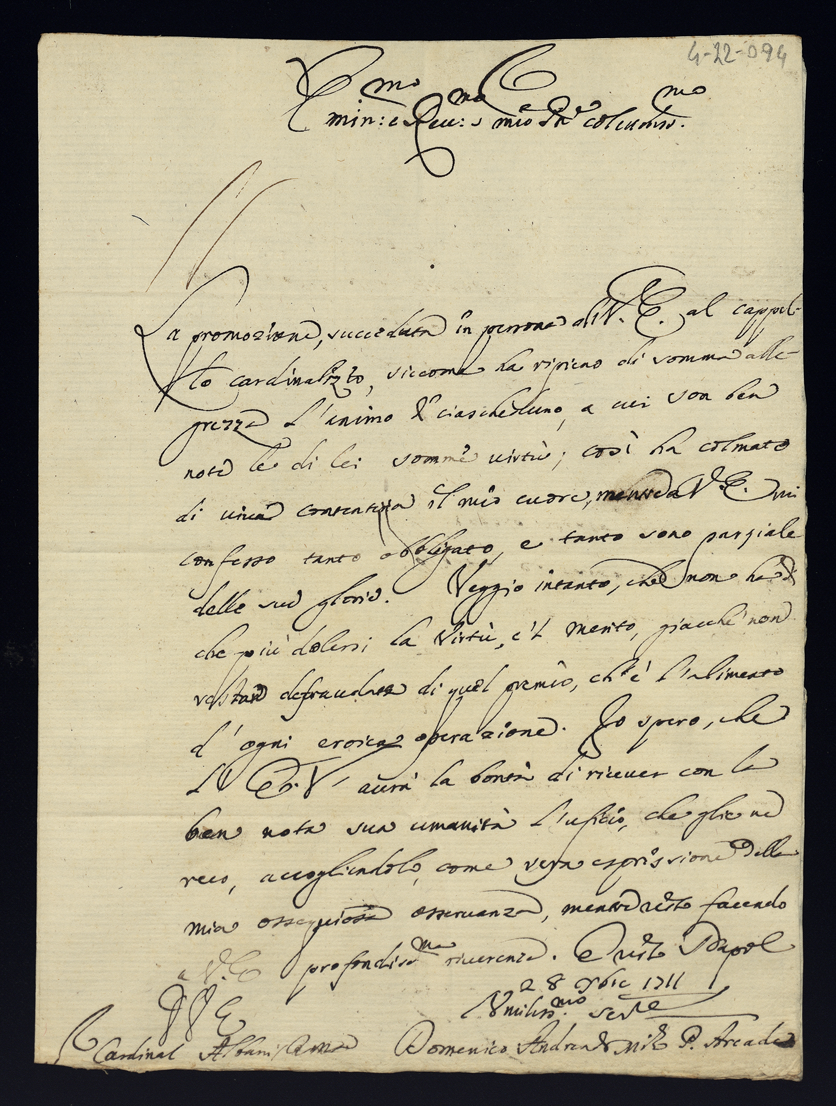 4-22-094
Emin:mo e Reu:mo s mio Sre colendmo.
La promozione, succeduta in persona di V. E. al cappel-
lo cardinalizio, siccome ha ripieno di somma alle-
grezza l'animo di ciascheduno, a cui son ben
note le di lei somme virtù; così ha colmato
di viva contentezza il mio cuore, mentre a V. E. mi
confesso tanto obbligato, e tanto sono parziale
delle sue glorie. Veggio intanto, che non ha di
che più dolersi la Virtù, e 'l merito, giacchè non
restan defraudate di quel premio, ch' è l'alimento
d' ogni eroica operazione. Io spero, che
l' E. V. aurà la bontà di riceuer con la
ben nota sua umanità l'uficio, che gliene
reco, accogliendolo, come vera espressione della
mia ossequiosa osseruanza, mentre resto facendo
a V. E. profondissma riuerenza. Napol
28 Xbre 1711
V. E.
Umiliss.mo Serre
Cardinal Albani Domenico Andrea de Milo P. Arcade